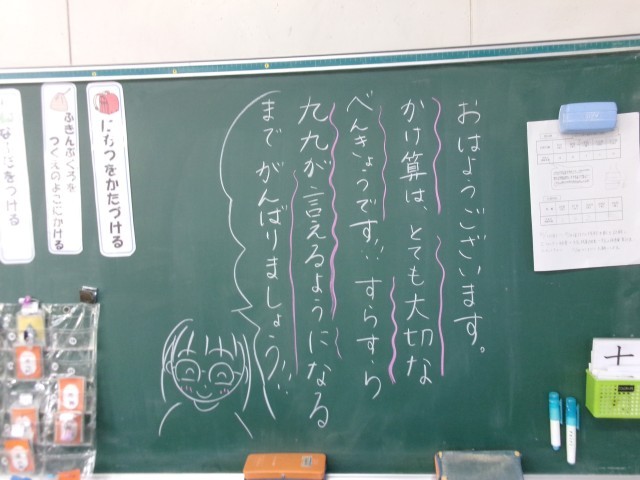 おはようございます。
かけ算は、とても大切な
べんきょうです!! すらすら
九九が言えるようになる
まで がんばりましょう!!
にもつをかたづける
ふきんぶくろを
つくえのよこにかける
をつける
十